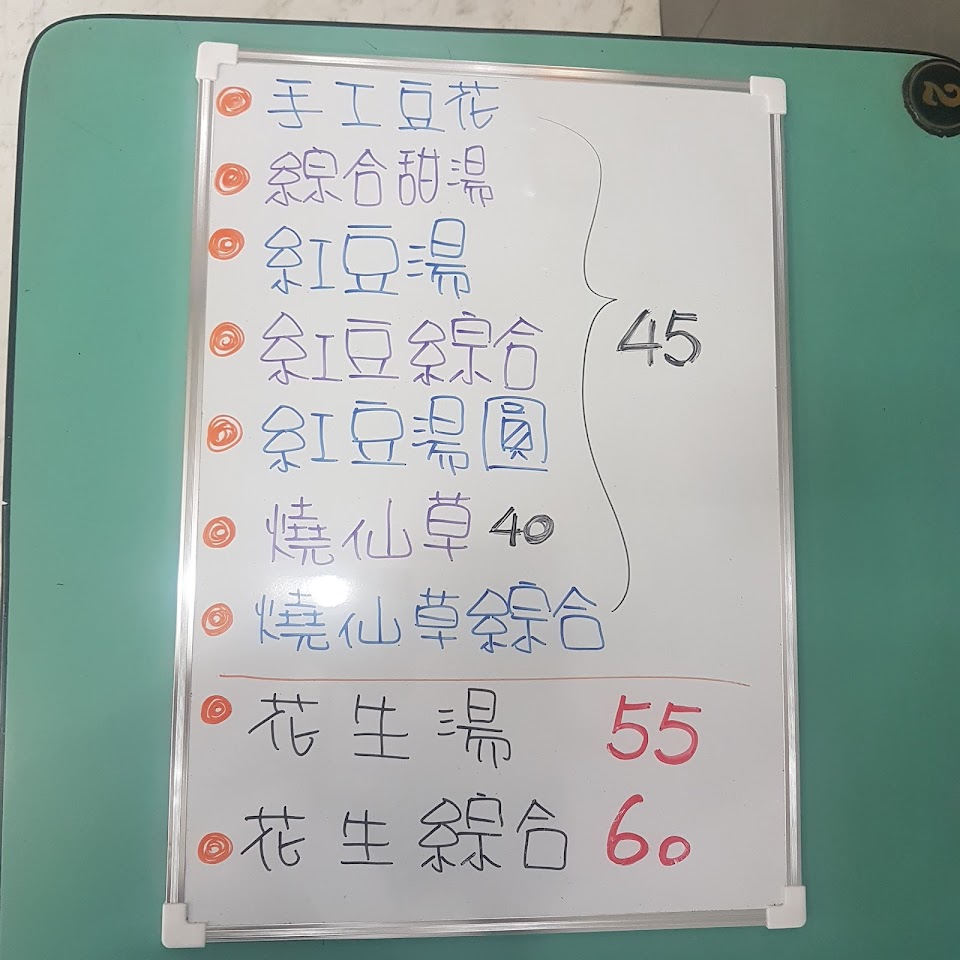 手工豆花
綜合甜湯
紅豆湯
紅豆綜合
45
紅豆湯圓
燒仙草 40
燒仙草綜合
花生湯 55
花生綜合 60
2